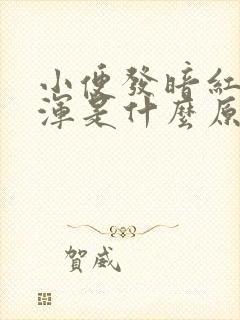 小便發暗紅
渾是什麼原
賀威